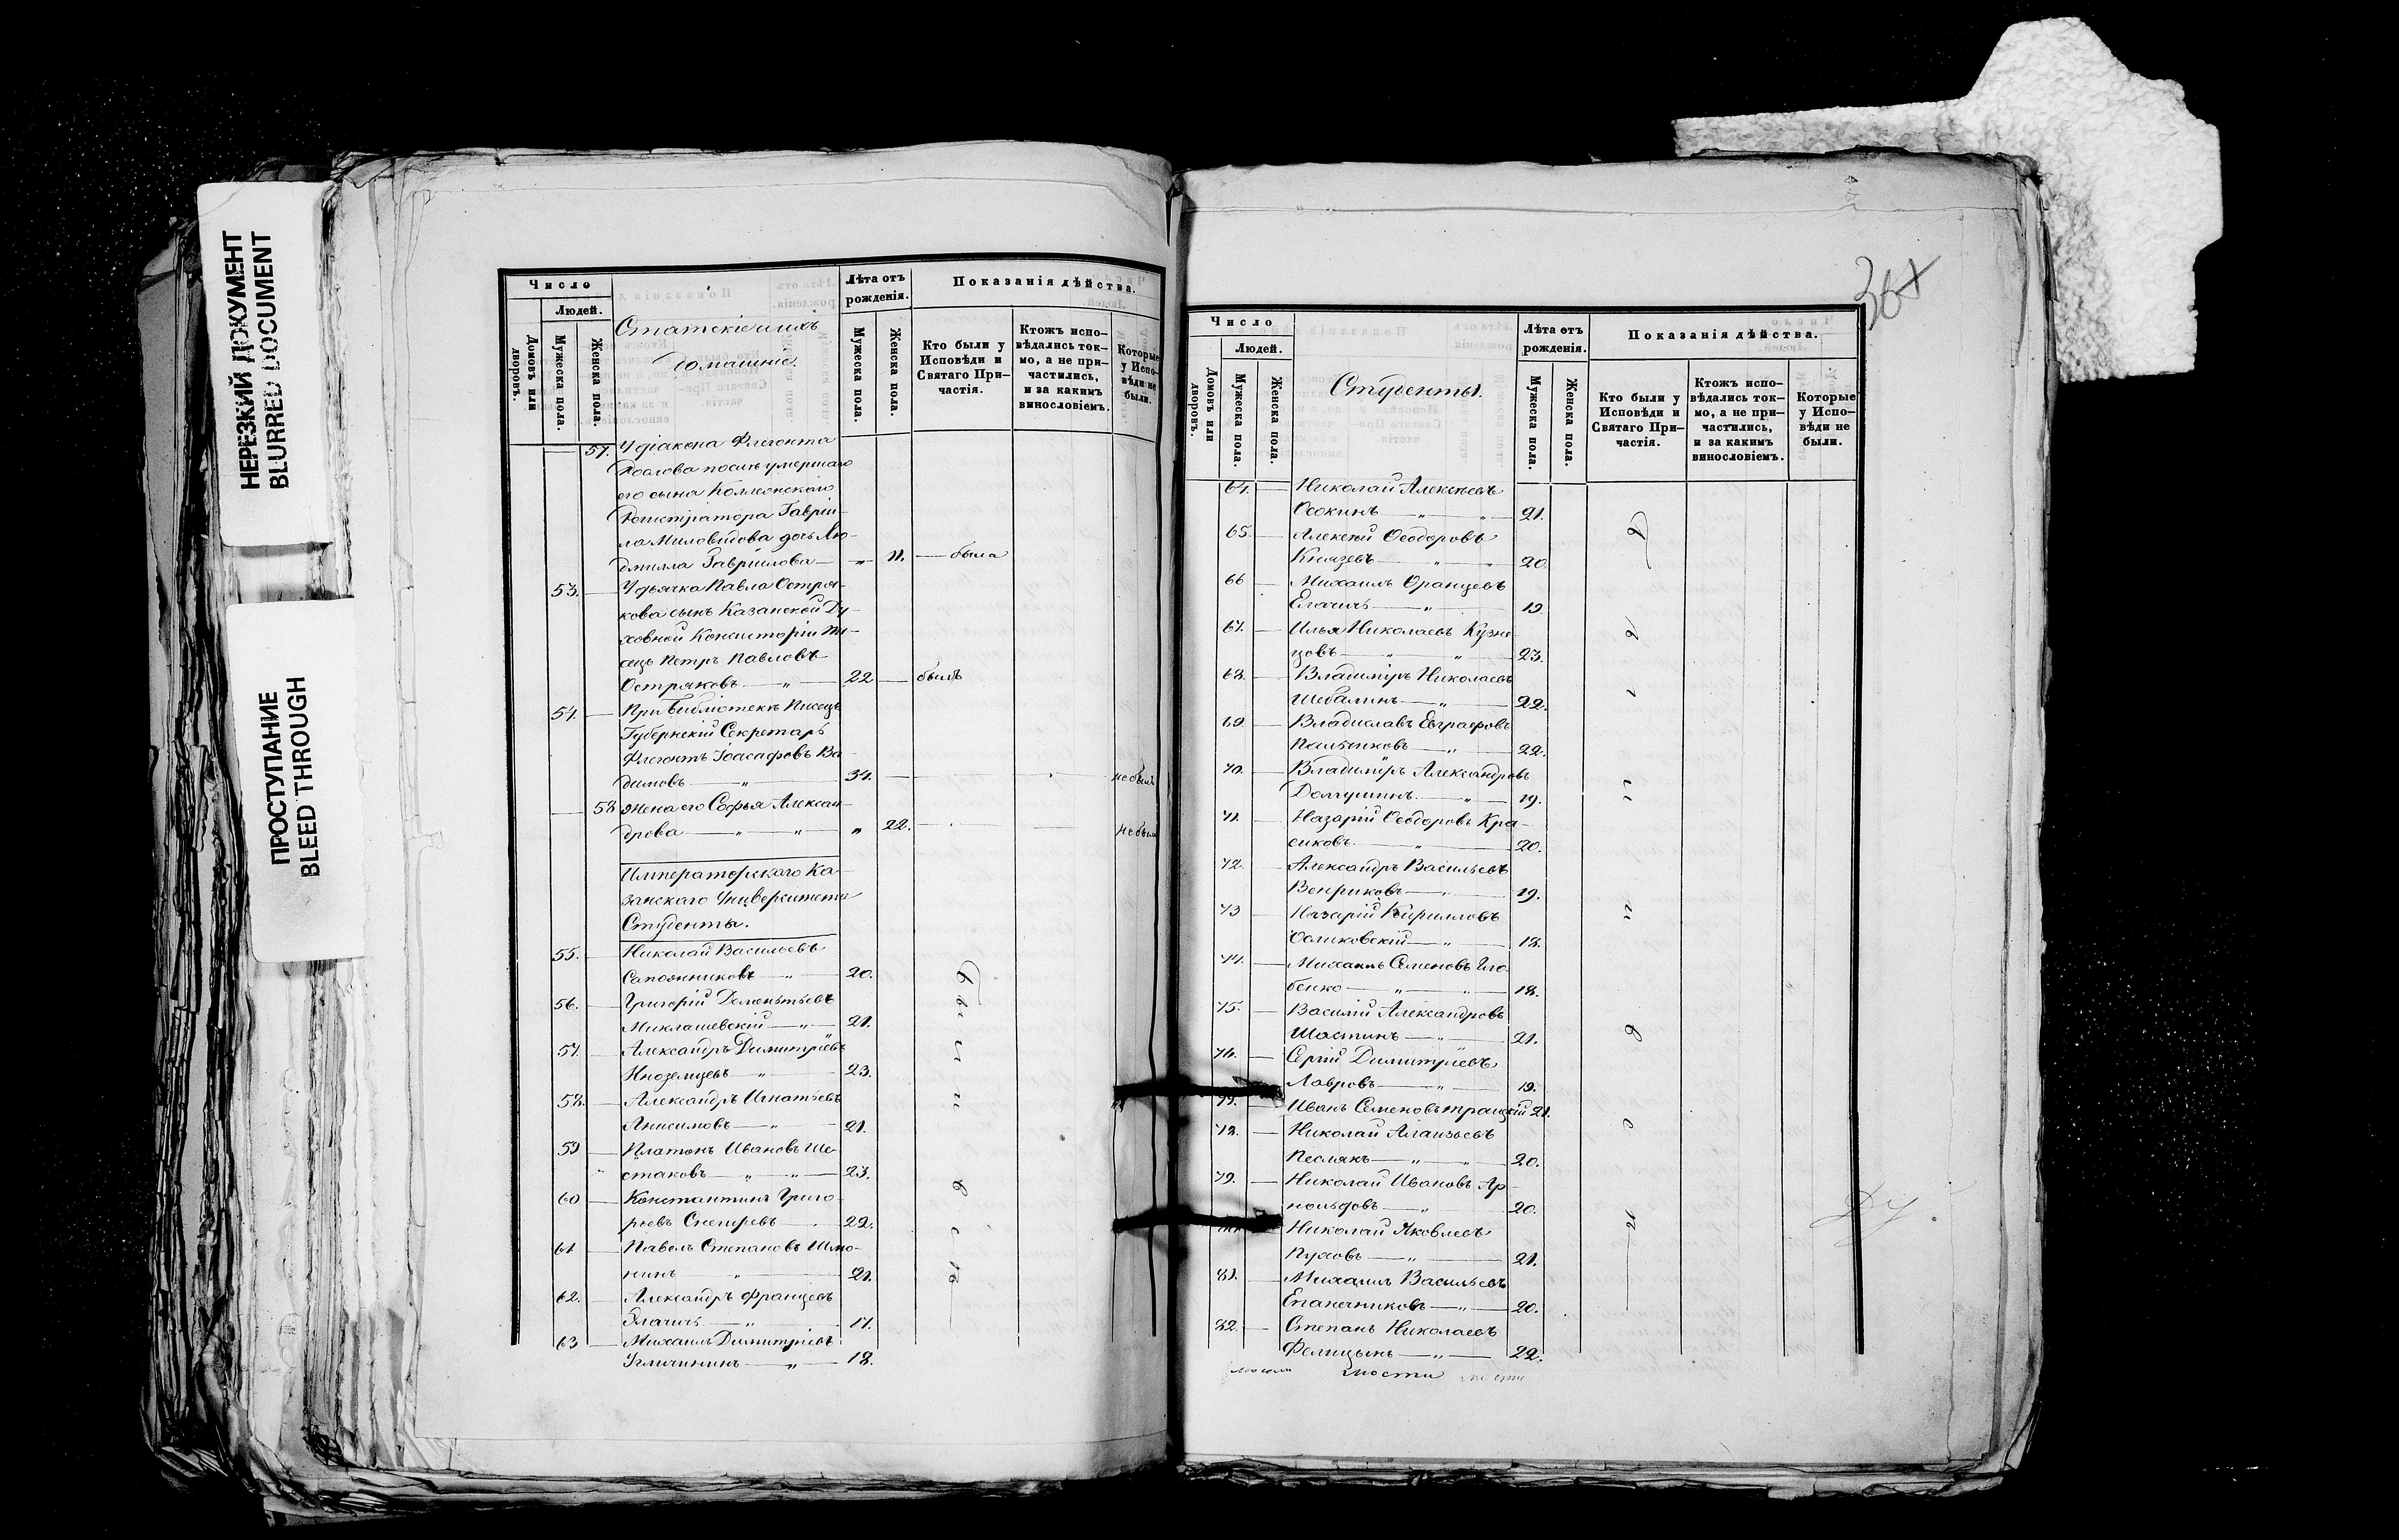 НЕРЕЗКИЙ ДОКУМЕНТ
BLURRED DOCUMENT
ПРОСТУПАНИЕ
BLEED THROUGH
Число
Людей.
Домовъ или дворовъ.
Мужеска пола.
Женска пола.
Статскіе и ихъ
домашніе.
Лѣта отъ рожденія.
Мужеска пола.
Женска пола.
Показанія дѣйства.
Кто были у Исповѣди и Святаго Причастія.
Ктожъ исповѣдались токмо, а не причастились, и за какимъ винословіемъ.
Которые у Исповѣди не были.
57. У діакона Флегонта
послѣ умершаго
его сына Коллежскаго
Регистратора Гаврiи-
ла Миловидова дочь Лю-
дмилла Гавріилова — " 11. — была
53. У дьячка Павла Остря-
кова сынъ Казанской Ду-
ховной Консисторіи Пи-
сецъ Петръ Павловъ
Остряковъ — " — 22 — былъ
54. При Библіотекѣ Писецъ
Губернскій Секретарь
Флегонтъ Іоасафовъ Ва-
димовъ — " 34. — не былъ
58 Жена его Софья Алексан-
дрова — " — " — " 22. — не была
Императорскаго Ка-
занскаго Университета
Студенты.
55. Николай Васильевъ
Сапожниковъ — " — 20.
56. Григорій Дементьевъ
Миклашевскій — " — 21.
57. Александръ Димитріевъ
Иноземцевъ — " — 23.
58. Александръ Игнатьевъ
Анисимовъ — " — 21.
59 Платонъ Ивановъ Ше-
стаковъ — " — " — 23.
60 Константинъ Григо-
рьевъ Снегиревъ — 22.
61 Павелъ Степановъ Шпо-
нинъ — " — 21.
62. Александръ Францевъ
Элачичъ — " — 17.
63 Михаилъ Димитріевъ
Угличининъ — " — 18.
были всѣ
364
Число
Людей.
Домовъ или дворовъ.
Мужеска пола.
Женска пола.
Студенты.
Лѣта отъ рожденія.
Мужеска пола.
Женска пола.
Показанія дѣйства.
Кто были у Исповѣди и Святаго Причастія.
Ктожъ исповѣдались токмо, а не причастились, и за какимъ винословіемъ.
Которые у Исповѣди не были.
64. — Николай Алексѣевъ
Осокинъ — " — " — 21.
65. — Алексѣй Ѳеодоровъ
Князевъ — " — " — 20.
66 — Михаилъ Францевъ
Елачичъ — " — 19.
67. — Илья Николаевъ Кузне-
цовъ — " — " — 23.
68. — Владиміръ Николаевъ
Шебалинъ — " — 22.
69. — Владиславъ Евграфовъ
Пальчиковъ — " — 22.
70. — Владиміръ Александровъ
Домушинъ. — " — 19.
71. — Назарій Ѳеодоровъ Кра-
сиковъ. — " — 20.
72. — Александръ Васильевъ
Венриковъ — 19.
73 — Назарій Кирилловъ
Осликовскій — " — 18.
74. — Михаилъ Семеновъ Гло-
бенко — " — " — 18.
75. — Василій Александровъ
Шастинъ — " — 21.
76. — Сергій Димитріевъ
Лавровъ — " — 19.
77. — Иванъ Семеновъ Троицкій 21.
78. — Николай Алоизьевъ
Песлякъ — " — " — 20.
79. — Николай Ивановъ Ар-
нольдовъ — " — 20.
Николай Яковлевъ
Пуховъ — " — 21.
81. — Михаилъ Васильевъ
Епанечниковъ — " — 20.
82. — Степанъ Николаевъ
Фелицынъ — " — 22.
были всѣ